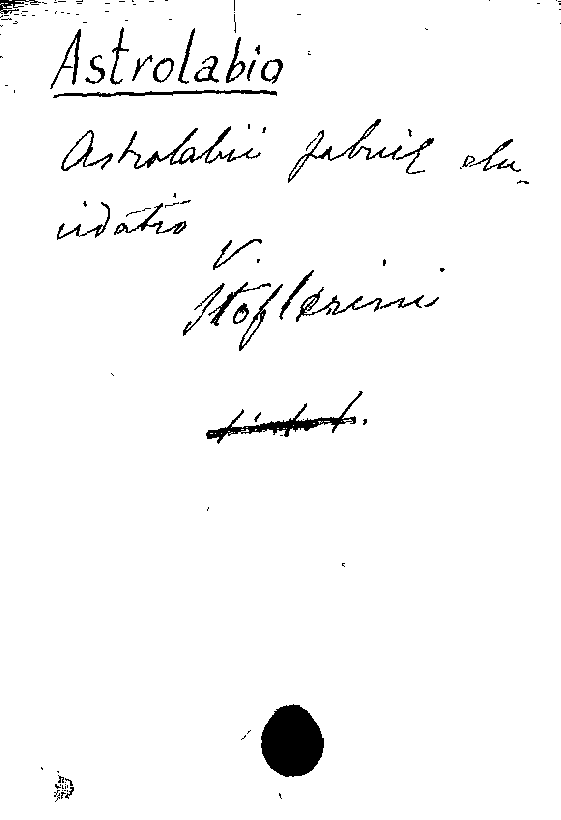 Astrolabio
Astrolabii fabricę elu-
cidatio
V.
Stoflerini